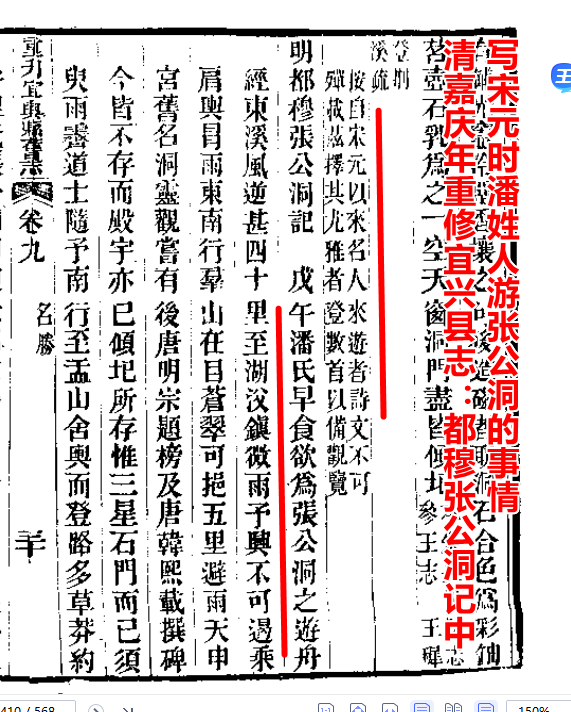 写宋元时潘姓人游张公洞的事情
清嘉庆年重修宜兴县志：都穆张公洞记中
茗壺石乳為之一空天窗洞門盡皆傾圮參王志 王穉
登荆
溪疏
按自宋元以來名人來遊者詩文不可
殫載茲擇其尤雅者登數首以備觀覽
明都穆張公洞記 戊午潘氏早食欲為張公洞之遊舟
經東溪風逆甚四十里至湖㳇鎮微雨予興不可遏乘
肩輿冒雨東南行羣山在目蒼翠可挹五里避雨天申
宮舊名洞靈觀嘗有後唐明宗題榜及唐韓熙載撰碑
今皆不存而殿宇亦已傾圮所存惟三星石門而已須
臾雨霽道士隨予南行至盂山舍輿而登路多草莽約
重刋宜興縣舊志 卷九 名勝
410 / 568
150%